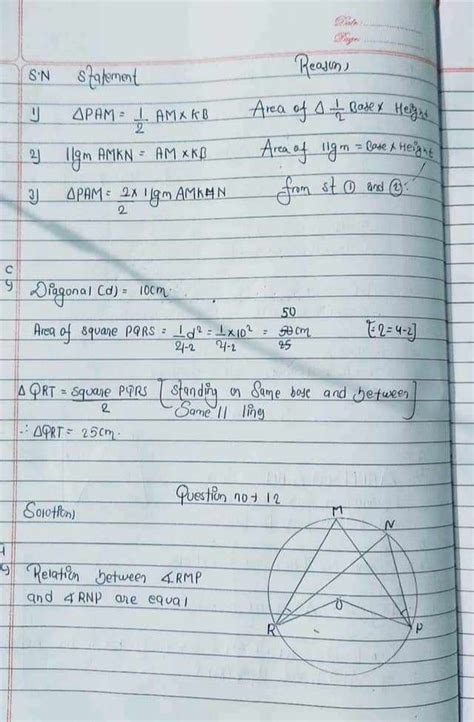 Date:
Page:
S.N Statement Reason,
1) ΔPAM = 1/2 AM×KB Area of Δ 1/2 Base × Height
2) llgm AMKN = AM × KB Area of llgm = Base × Height
3) ΔPAM = 2×1/2 llgm AMKN from st ① and ②
c
y Diagonal (d) = 10cm.
50
Area of square PQRS = 1/2 d² = 1/2 × 10² = 50 cm
4-2 4-2 25 [∵ 2 = 4-2]
Δ QRT = square PQRS / 2 [standing on same base and between
Same ll line]
∴ ΔQRT = 25cm.
Question no 12
Solution,
Relation between ∢RMP
and ∢RNP are equal
M
N
O
R
P